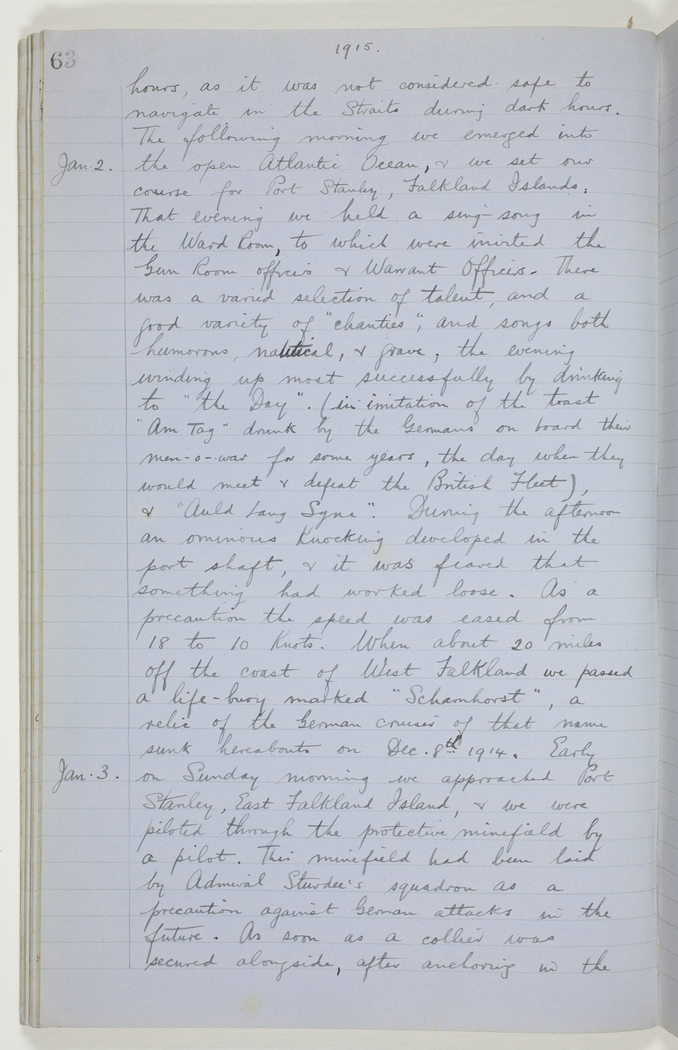 63
1915.
hours, as it was not considered safe to
navigate in the Straits during dark hours.
The following morning we emerged into
Jan. 2. the open Atlantic Ocean, & we set our
course for Port Stanley, Falkland Islands.
That evening we held a sing-song in
the Ward Room, to which were invited the
Gun Room officers & Warrant Officers. There
was a varied selection of talent, and a
good variety of "chanties", and songs both
humorous, nautical, & grave, the evening
winding up most successfully by drinking
to "the Day". (in imitation of the toast
"Am Tag" drunk by the Germans on board their
men-o-war for some years, the day when they
would meet & defeat the British Fleet),
& "Auld Lang Syne". During the afternoon
an ominous knocking developed in the
port shaft, & it was feared that
something had worked loose. As a
precaution the speed was eased from
18 to 10 Knots. When about 20 miles
off the coast of West Falkland we passed
a life-buoy marked "Scharnhorst", a
relic of the German cruiser of that name
sunk hereabouts on Dec. 8th 1914. Early
Jan. 3. on Sunday morning we approached Port
Stanley, East Falkland Island, & we were
piloted through the protective minefield by
a pilot. This minefield had been laid
by Admiral Sturdee's squadron as a
precaution against German attacks in the
future. As soon as a collier was
secured alongside, after anchoring in the